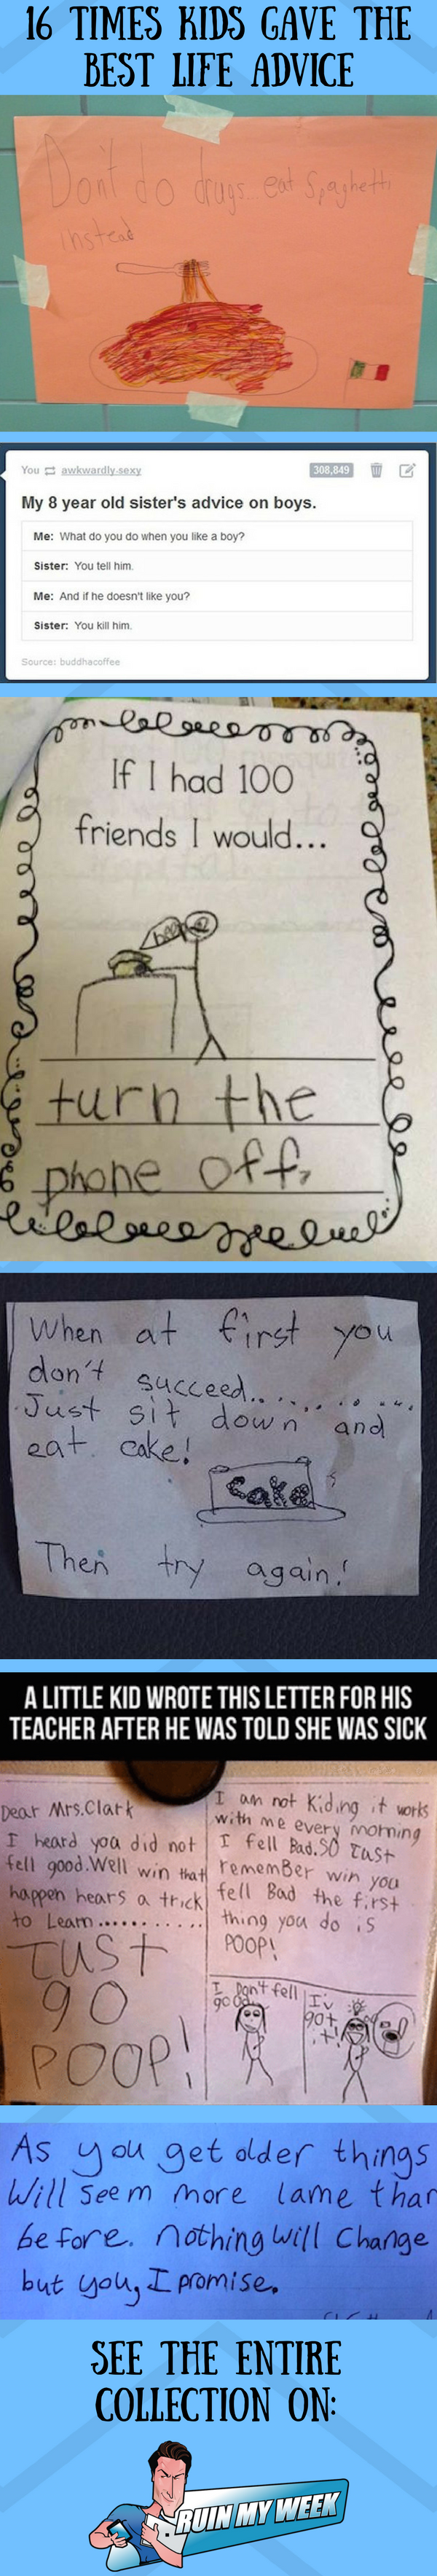 16 TIMES KIDS GAVE THE
BEST LIFE ADVICE
Don't do drugs... eat Spaghetti
instead
You awkwardly-sexy 308,849
My 8 year old sister's advice on boys.
Me: What do you do when you like a boy?
Sister: You tell him.
Me: And if he doesn't like you?
Sister: You kill him.
Source: buddhacoffee
If I had 100
friends I would...
turn the
phone off.
When at first you
don't succeed..............
Just sit down and
eat cake!
Cake
Then try again!
A LITTLE KID WROTE THIS LETTER FOR HIS
TEACHER AFTER HE WAS TOLD SHE WAS SICK
Dear Mrs.Clark
I heard you did not
fell good.Well win that
happen hears a trick
to Learn...........
JUST
GO
POOP!
I am not Kiding it works
with me every morning
I fell Bad.SO Just
remember win you
fell Bad the first
thing you do is
POOP!
I Don't fell
good
I'v
got
it!
As you get older things
Will seem more lame than
before. nothing will Change
but you, I promise.
SEE THE ENTIRE
COLLECTION ON:
RUIN MY WEEK